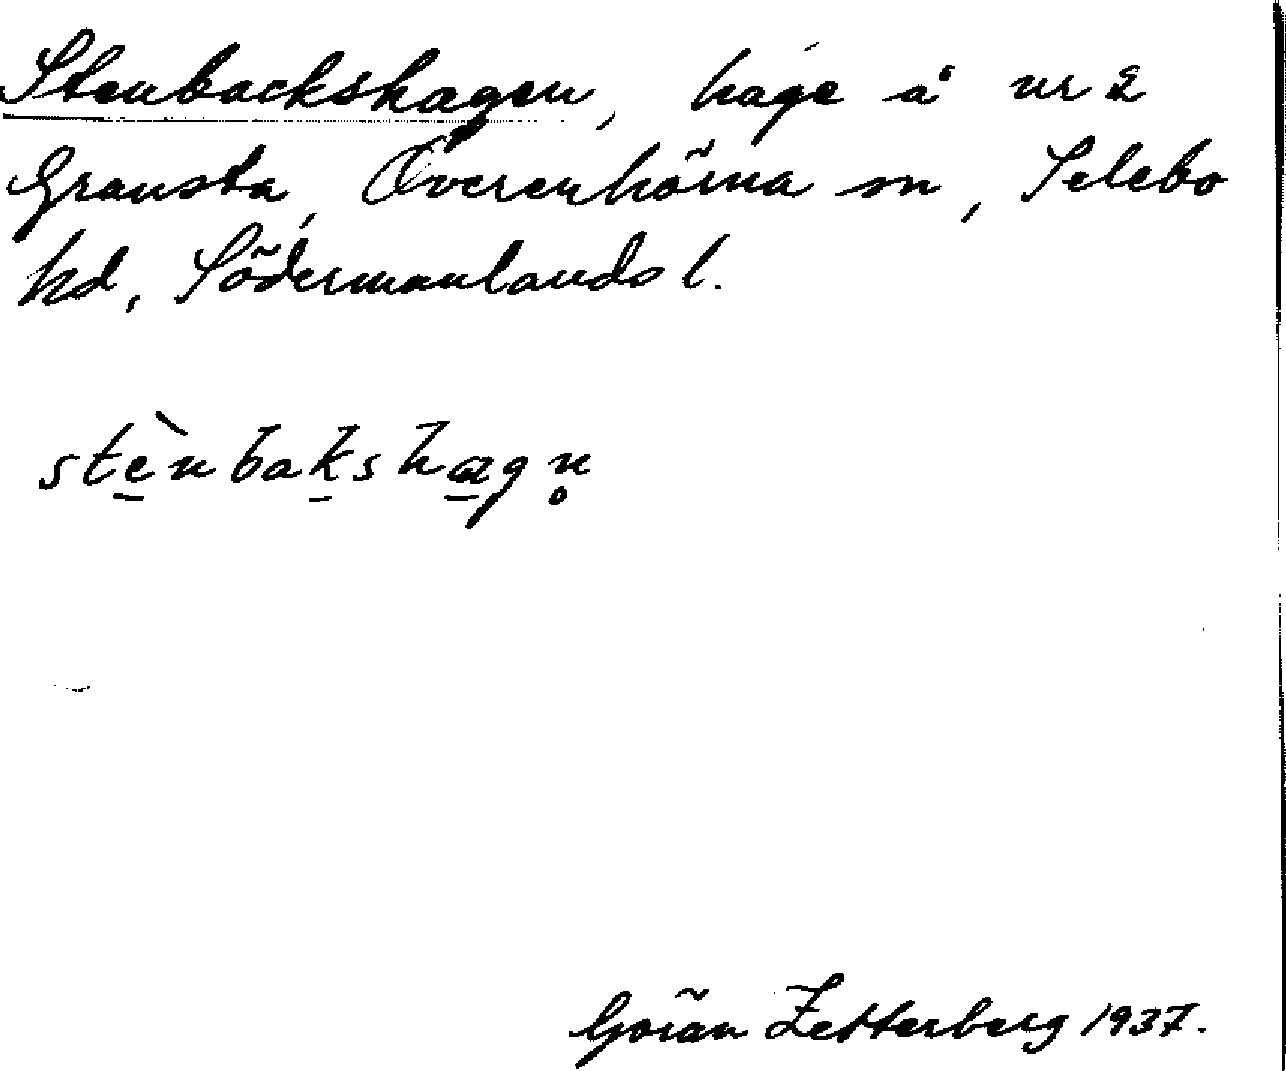 Stenbackshagen, hage å nr 2
Gransta, Överenhörna sn, Selebo
hd, Södermanlands l.
stè̲nbak̲sha̲gn̥
Göran Zetterberg 1937.